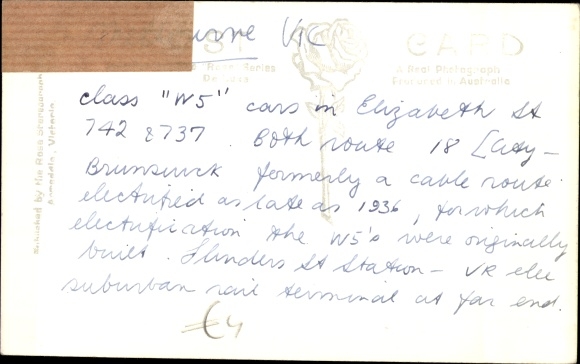 urne VIC
POST CARD
Rose Series
A Real Photograph
Produced in Australia
Published by the Rose Stereograph
Armadale, Victoria
class "W5" cars in Elizabeth St
742 & 737. Both route 18 [City –
Brunswick formerly a cable route
electrified as late as 1936, for which
electrification the W5's were originally
built. Flinders St Station – VR elec
suburban rail terminal at far end.
€4